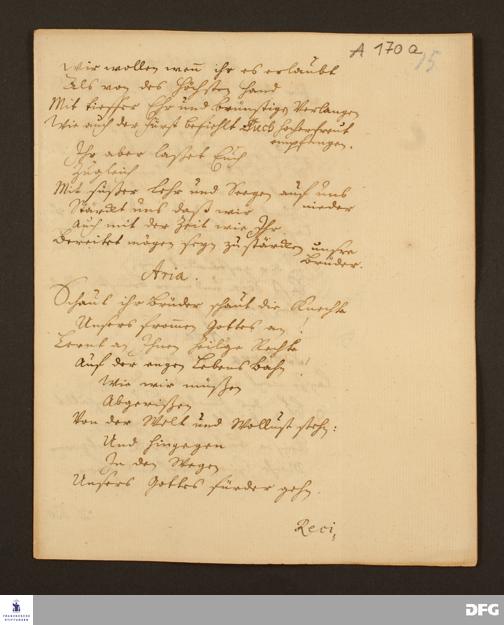 A 170a
15
Wir wollen wen̄ ihr es erlaubt
Als von des Höchsten Hand
Mit tieffer Ehr und brünstigen Verlangen
Wie auch der Fürst befiehlt Euch hocherfreut
empfangen.
Ihr aber lasset Euch
Zugleich
Mit süßer Lehr und Seegen auf uns
nieder
Stärckt uns daß wir
Auch mit der Zeit wie Ihr
Bereitet mögen seyn zu stärcken unsre
Brüder.
Aria.
Schaut ihr Brüder schaut die Knechte
Unsers from̄en Gottes an
Lernt an Ihnen heilige Rechte
Auf der engen Lebens Bahn
Wie wir müßen
Abgerißen
Von der Welt und Wollust stehn:
Und hingegen
In den Wegen
Unsers Gottes fürder gehn.
Reci,
FRANCKESCHE
STIFTUNGEN
DFG